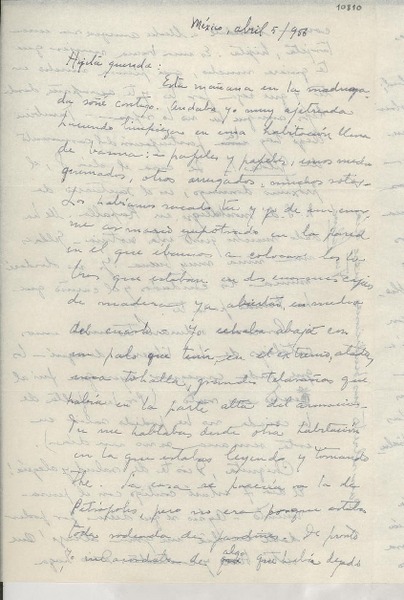 10810
México, abril 5/956
Hijita querida:
Esta mañana en la madruga
da soñé contigo. Andaba yo muy ajetreada
haciendo limpieza en una habitación llena
de basura: papeles y papeles, unos medio
quemados, otros arrugados, muchos rotos.
Los habíamos sacado tú y yo de un enor
me armario empotrado en la pared
en el que íbamos a colocar los li
bros que estaban en dos enormes cajas
de madera ya abiertas, en medio
del cuarto. Yo echaba abajo con
un palo que tenía en el extremo, atada,
una tohalla, grandes telarañas que
había en la parte alta del armario.
Tú me hablabas desde otra habitación
en la que estabas leyendo y tomando
té. La casa se parecía a la de
Petrópolis, pero no era porque estaba
toda rodeada de jardines. De pronto
yo me acordaba de algo que había dejado